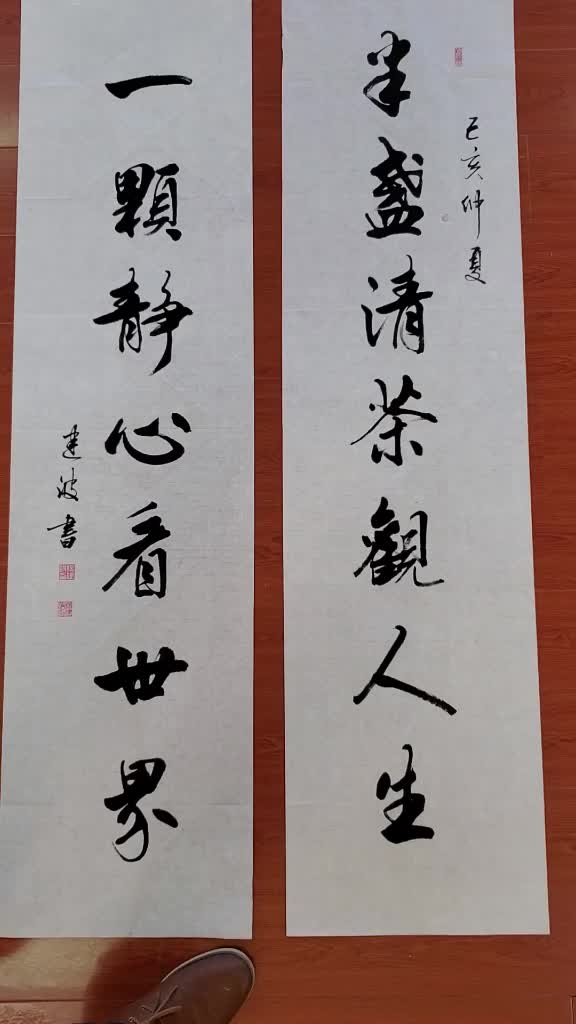 己亥仲夏
半盏清茶觀人生
一顆靜心看世界
建波書